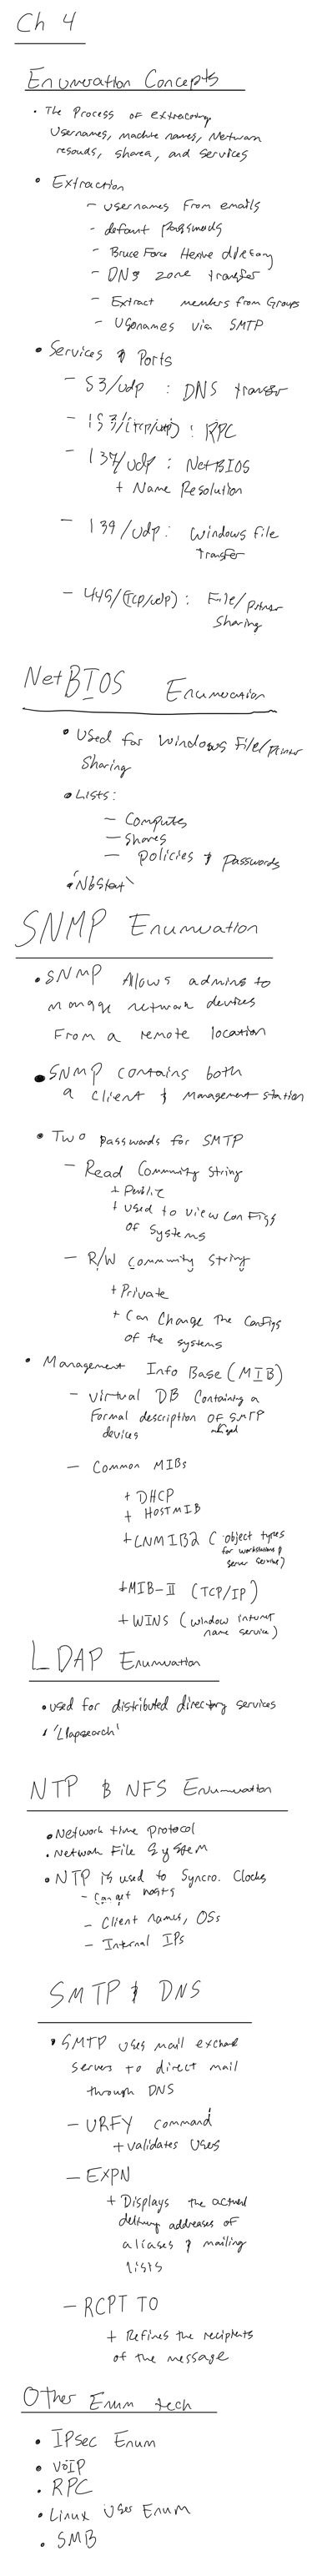 Ch 4
Enumeration Concepts
• The Process of extracting
Usernames, machine names, Network
resources, shares, and services
• Extraction
– usernames from emails
– default passwords
– Bruce Force directory
– DNS zone transfer
– Extract members from Groups
– Usernames via SMTP
• Services & Ports
– 53/udp : DNS transfer
– 153/(tcp/udp) : RPC
– 137/udp : NetBIOS
+ Name Resolution
– 139/udp : Windows file
Transfer
– 445/(TCP/udp) : File/printer
Sharing
NetBIOS Enumeration
• Used for Windows File/printer
Sharing
• Lists:
– Computes
– Shares
– policies & passwords
• 'Nbstat'
SNMP Enumeration
• SNMP Allows admins to
manage network devices
From a remote location
• SNMP contains both
a client & Management station
• Two passwords for SMTP
– Read Community String
+ Public
+ used to view configs
of systems
– R/W community string
+ Private
+ Can Change The configs
of the systems
• Management Info Base (MIB)
– virtual DB Containing a
Formal description of SMTP
devices
– Common MIBs
+ DHCP
+ HOSTMIB
+ LNMIB2 (object types
for workstations &
server service)
+ MIB-II (TCP/IP)
+ WINS (window internet
name service)
LDAP Enumeration
• used for distributed directory services
• 'Ldapsearch'
NTP & NFS Enumeration
• Network time protocol
• Network File System
• NTP is used to Syncro. Clocks
– Can get hosts
– Client names, OSs
– Internal IPs
SMTP & DNS
• SMTP uses mail exchan
servers to direct mail
through DNS
– VRFY command
+ validates users
– EXPN
+ Displays the actual
delivery addresses of
aliases & mailing
lists
– RCPT TO
+ Refines the recipients
of the message
Other Enum tech
• IPsec Enum
• VOIP
• RPC
• Linux User Enum
• SMB